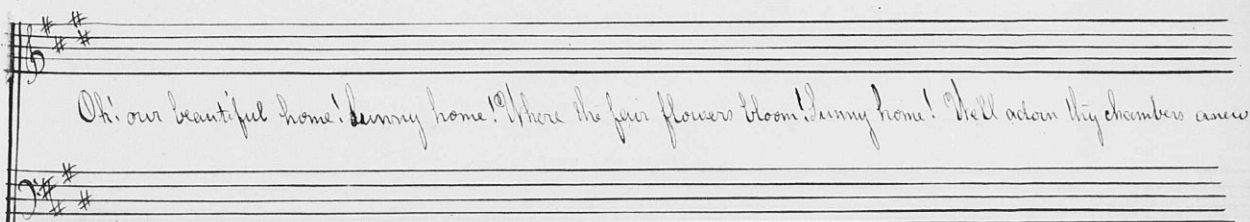 Oh! our beautiful home! Sunny home! Where the fair flowers bloom! Sunny home! We'll adorn thy chambers anew